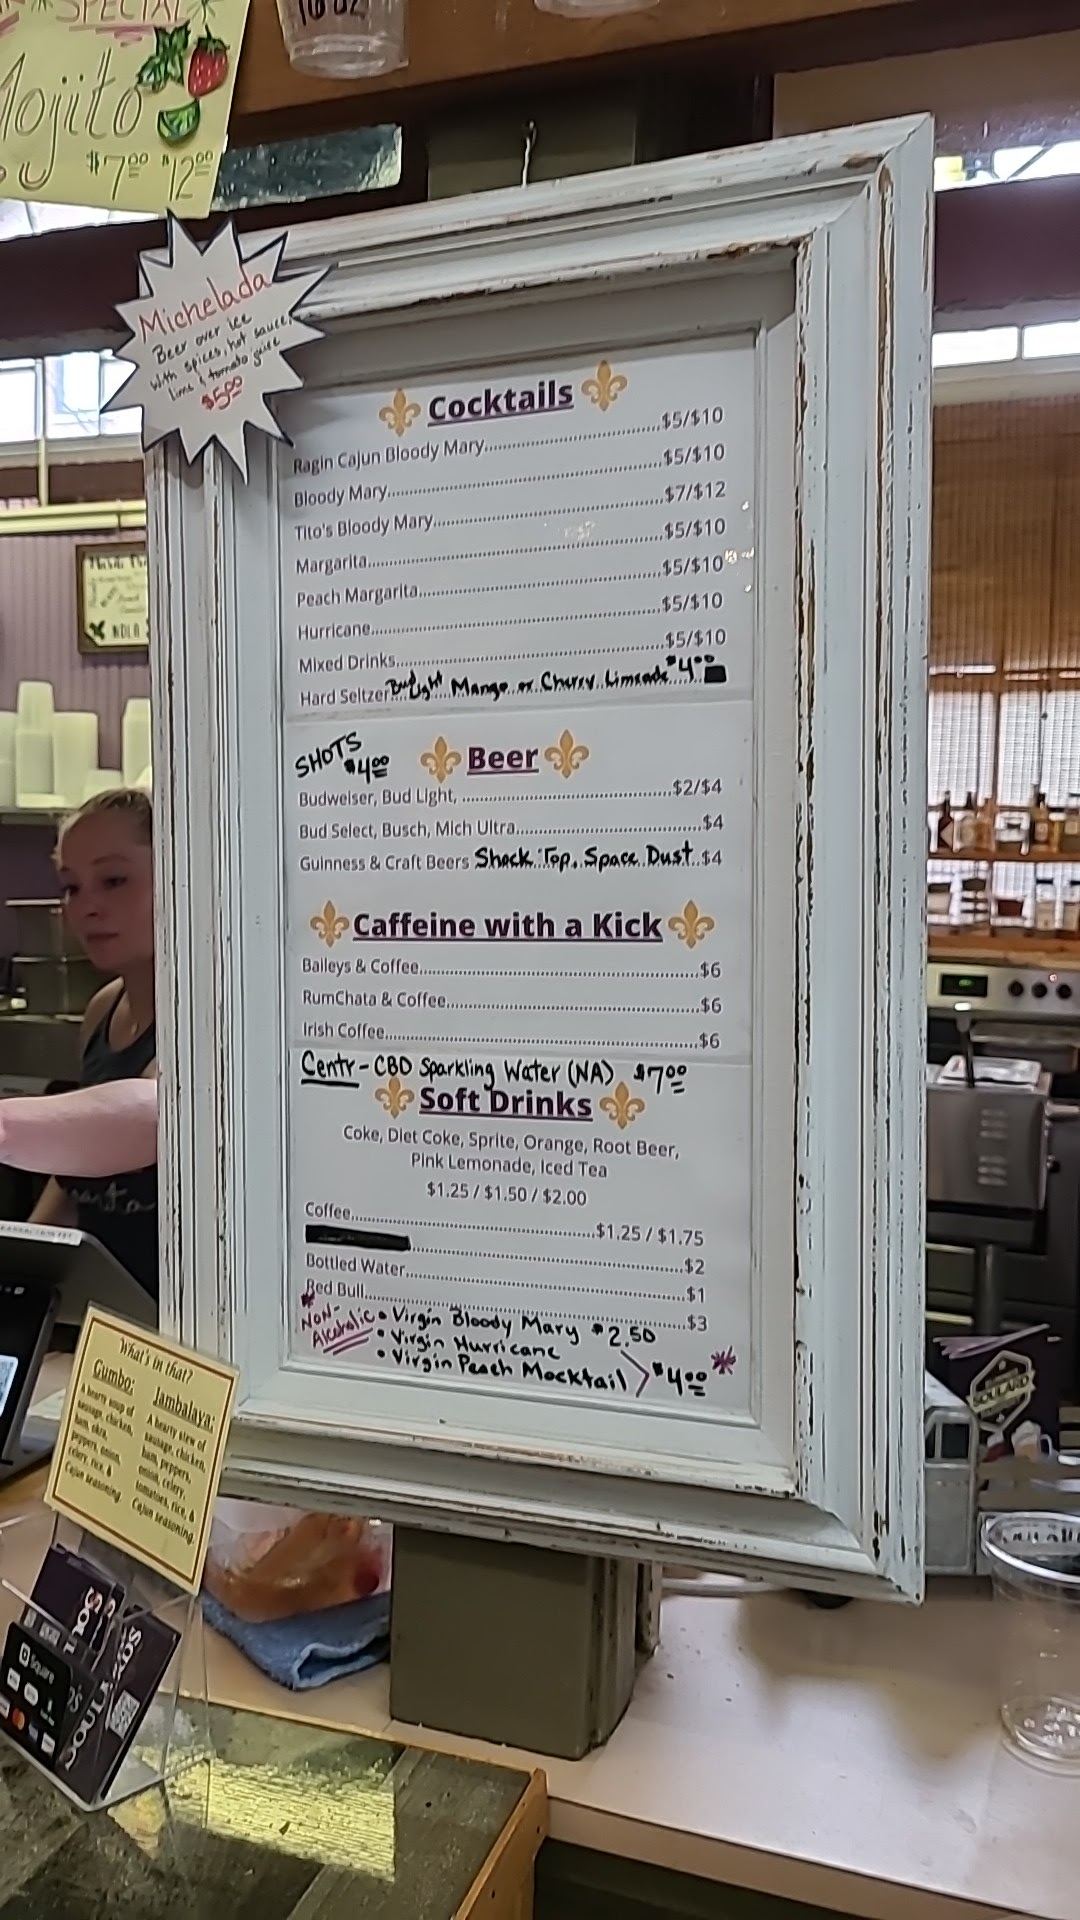 SPECIAL
Mojito
$7.00 $12.00
16 oz
Michelada
Beer over ice
with spices, hot sauce,
lime & tomato juice
$5.00
Cocktails
Ragin Cajun Bloody Mary..........$5/$10
Bloody Mary..........$5/$10
Tito's Bloody Mary..........$7/$12
Margarita..........$5/$10
Peach Margarita..........$5/$10
Hurricane..........$5/$10
Mixed Drinks..........$5/$10
Hard Seltzer Bud Light Mango or Cherry Limeade $4.00
SHOTS
$4.00
Beer
Budweiser, Bud Light, ..........$2/$4
Bud Select, Busch, Mich Ultra..........$4
Guinness & Craft Beers Shock Top, Space Dust $4
Caffeine with a Kick
Baileys & Coffee..........$6
RumChata & Coffee..........$6
Irish Coffee..........$6
Centr - CBD Sparkling Water (NA) $7.00
Soft Drinks
Coke, Diet Coke, Sprite, Orange, Root Beer,
Pink Lemonade, Iced Tea
$1.25 / $1.50 / $2.00
Coffee..........$1.25 / $1.75
..........$2
Bottled Water..........$1
Red Bull..........$3
*NON-
Alcoholic
• Virgin Bloody Mary $2.50
• Virgin Hurricane
• Virgin Peach Mocktail > $4.00 *
What's in that?
Gumbo:
A hearty soup of
sausage, chicken,
ham, okra,
peppers, onion,
celery, rice, &
Cajun seasoning.
Jambalaya:
A hearty stew of
sausage, chicken,
ham, peppers,
onion, celery,
tomatoes, rice, &
Cajun seasoning.
Square
SOULARD
NOLA